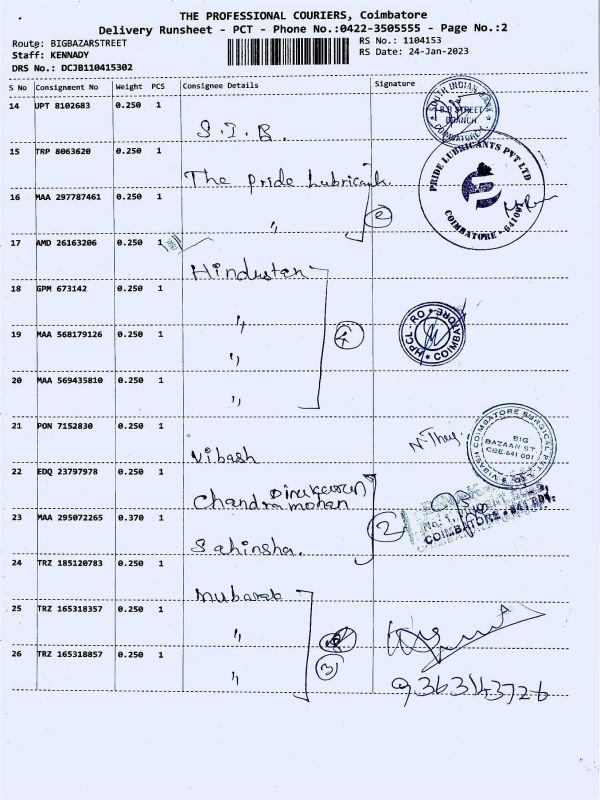 THE PROFESSIONAL COURIERS, Coimbatore
Delivery Runsheet - PCT - Phone No.:0422-3505555 - Page No.:2
Route: BIGBAZARSTREET
RS No.: 1104153
Staff: KENNADY
RS Date: 24-Jan-2023
DRS No.: DCJB110415302
S No Consignment No Weight PCS Consignee Details Signature
14 UPT 8102683 0.250 1
S.I.B.
SOUTH INDIAN BANK
B.B STREET
BRANCH
COIMBATORE
15 TRP 8063620 0.250 1
The Pride Lubricants
PRIDE LUBRICANTS PVT LTD
COIMBATORE - 641001
16 MAA 297787461 0.250 1
" 2
17 AMD 26163206 0.250 1
Hindustan
18 GPM 673142 0.250 1
"
HPCL-RO
COIMBATORE
19 MAA 568179126 0.250 1
" 4
20 MAA 569435810 0.250 1
"
21 PON 7152830 0.250 1
Vibash
VIBASH COIMBATORE SURGICAL PVT. LTD.
BIG
BAZAAN ST
CBE-641 001
22 EDQ 23797978 0.250 1
Dinakaran
Chandramohan
23 MAA 295072265 0.370 1
Sahinsha. 2
COIMBATORE - 641 001.
24 TRZ 185120783 0.250 1
Mubarak
25 TRZ 165318357 0.250 1
"
26 TRZ 165318857 0.250 1
" 3
9363143726